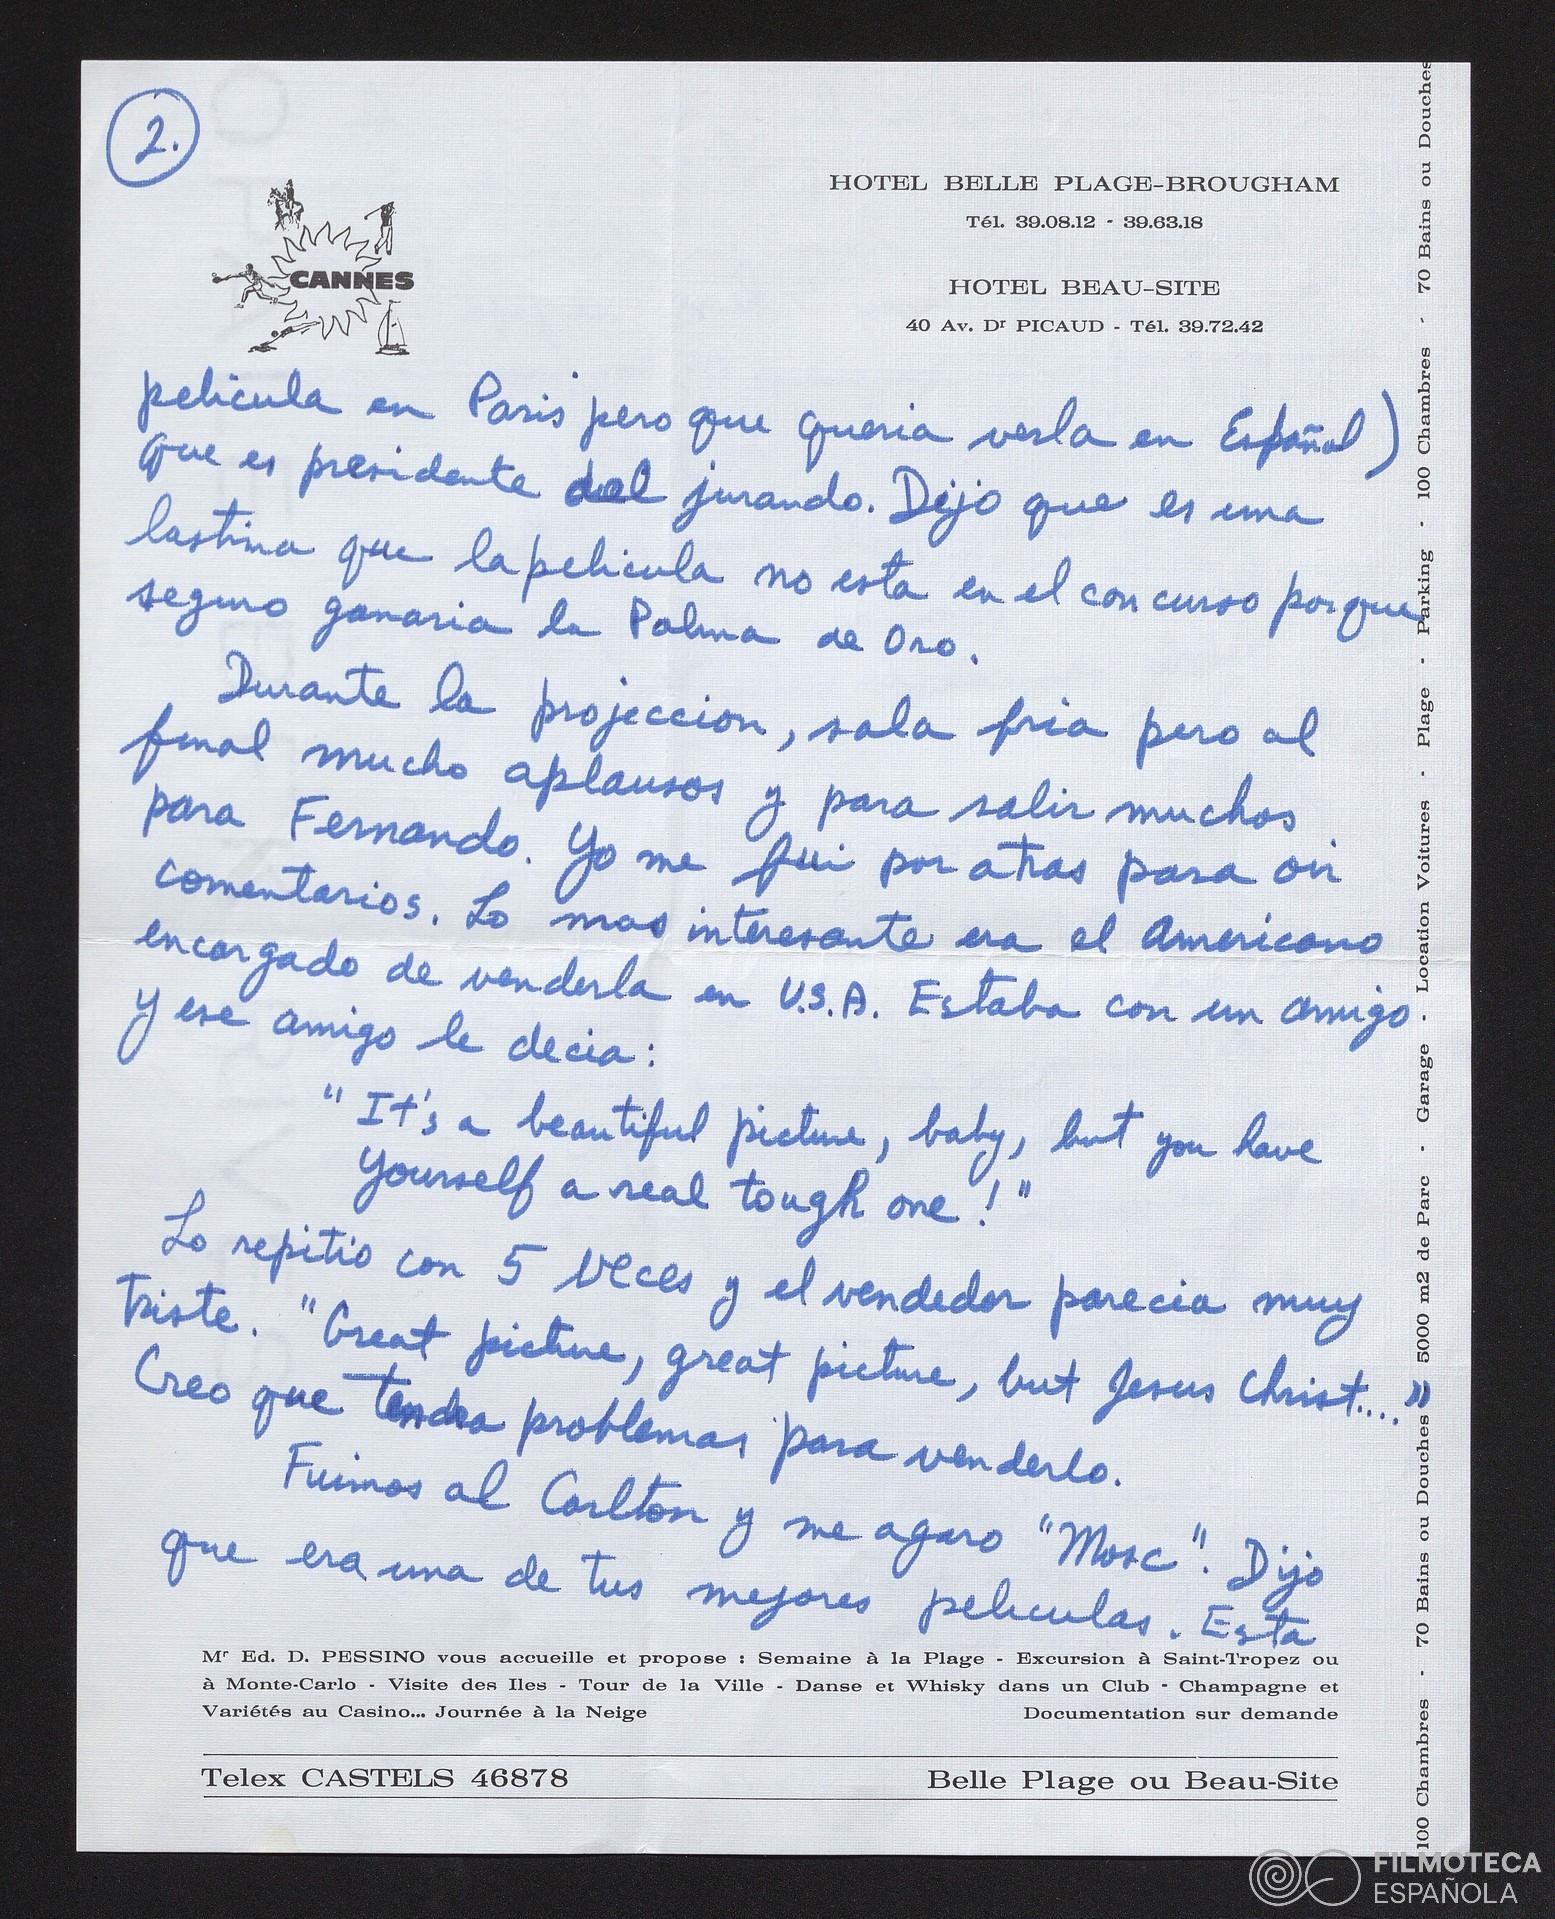 2.
CANNES
HOTEL BELLE PLAGE-BROUGHAM
Tél. 39.08.12 - 39.63.18
HOTEL BEAU-SITE
40 Av. Dr PICAUD - Tél. 39.72.42
pelicula en Paris pero que queria verla en Español)
que es presidente del jurando. Dijo que es una
lastima que la pelicula no esta en el concurso porque
seguro ganaria la Palma de Oro.
Durante la projeccion, sala fria pero al
final mucho aplausos y para salir muchos
para Fernando. Yo me fui por atras para oir
comentarios. Lo mas interesante era el Americano
encargado de venderla en U.S.A. Estaba con un amigo
y ese amigo le decia:
"It's a beautiful picture, baby, but you have
yourself a real tough one!"
Lo repitio con 5 veces y el vendedor parecia muy
triste. "Great picture, great picture, but Jesus Christ...."
Creo que tendra problemas para venderlo.
Fuimos al Carlton y me agaro "Mosc". Dijo
que era una de tus mejores peliculas. Esta
Mr Ed. D. PESSINO vous accueille et propose : Semaine à la Plage - Excursion à Saint-Tropez ou
à Monte-Carlo - Visite des Iles - Tour de la Ville - Danse et Whisky dans un Club - Champagne et
Variétés au Casino... Journée à la Neige Documentation sur demande
Telex CASTELS 46878 Belle Plage ou Beau-Site
100 Chambres - 70 Bains ou Douches 5000 m2 de Parc - Garage - Location Voitures - Plage - Parking - 100 Chambres - 70 Bains ou Douches
FILMOTECA
ESPAÑOLA